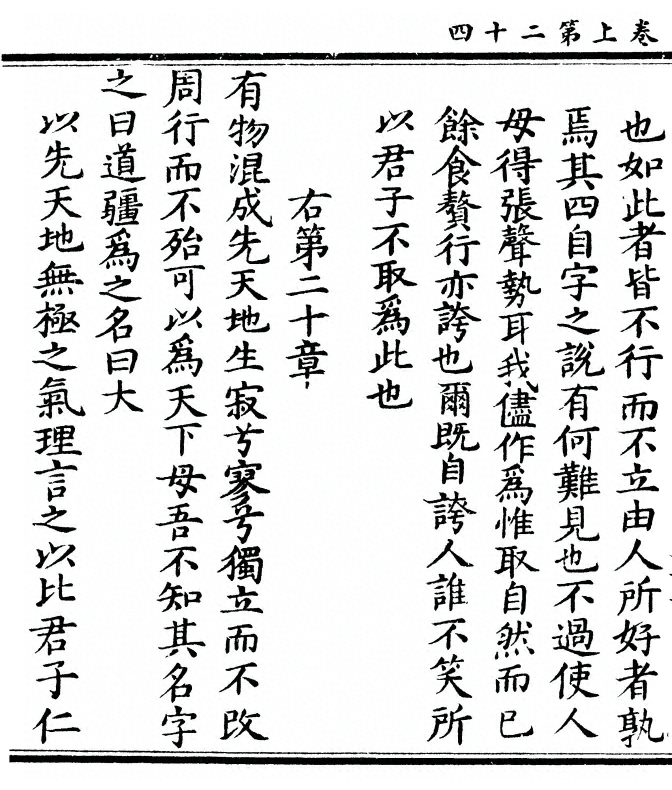 卷上第二十四
也如此者皆不行而不立由人所好者孰
焉其四自字之說有何難見也不過使人
毋得張聲勢耳我儘作爲惟取自然而已
餘食贅行亦誇也爾既自誇人誰不笑所
以君子不取爲此也
右第二十章
有物混成先天地生寂兮寥兮獨立而不改
周行而不殆可以爲天下母吾不知其名字
之曰道彊爲之名曰大
以先天地無極之氣理言之以比君子仁